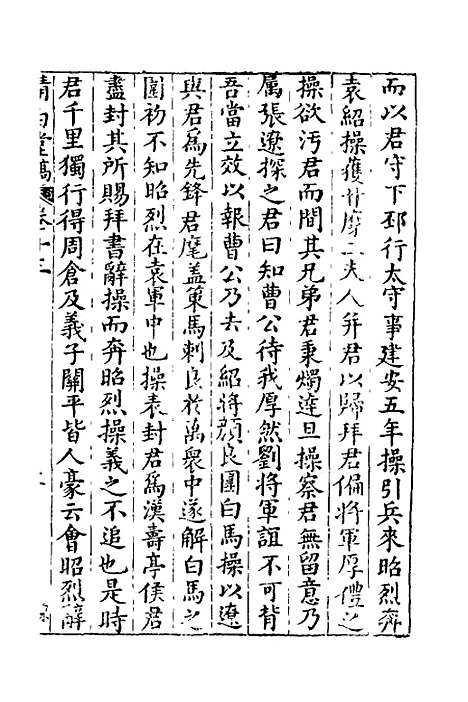 而以君守下邳行太守事建安五年操引兵來昭烈奔
袁紹操獲甘糜二夫人并君以歸拜君偏將軍厚禮之
操欲污君而間其兄弟君秉燭達旦操察君無留意乃
属張遼探之君曰知曹公待我厚然劉將軍誼不可背
吾當立效以報曹公乃去及紹將顔良圍白馬操以遼
與君爲先鋒君麾盖策馬刺良於萬衆中遂解白馬之
圍初不知昭烈在袁軍中也操表封君爲漢壽亭侯君
盡封其所賜拜書辭操而奔昭烈操義之不追也是時
君千里獨行得周倉及義子關平皆人豪云會昭烈辭
清白堂稿 卷十三